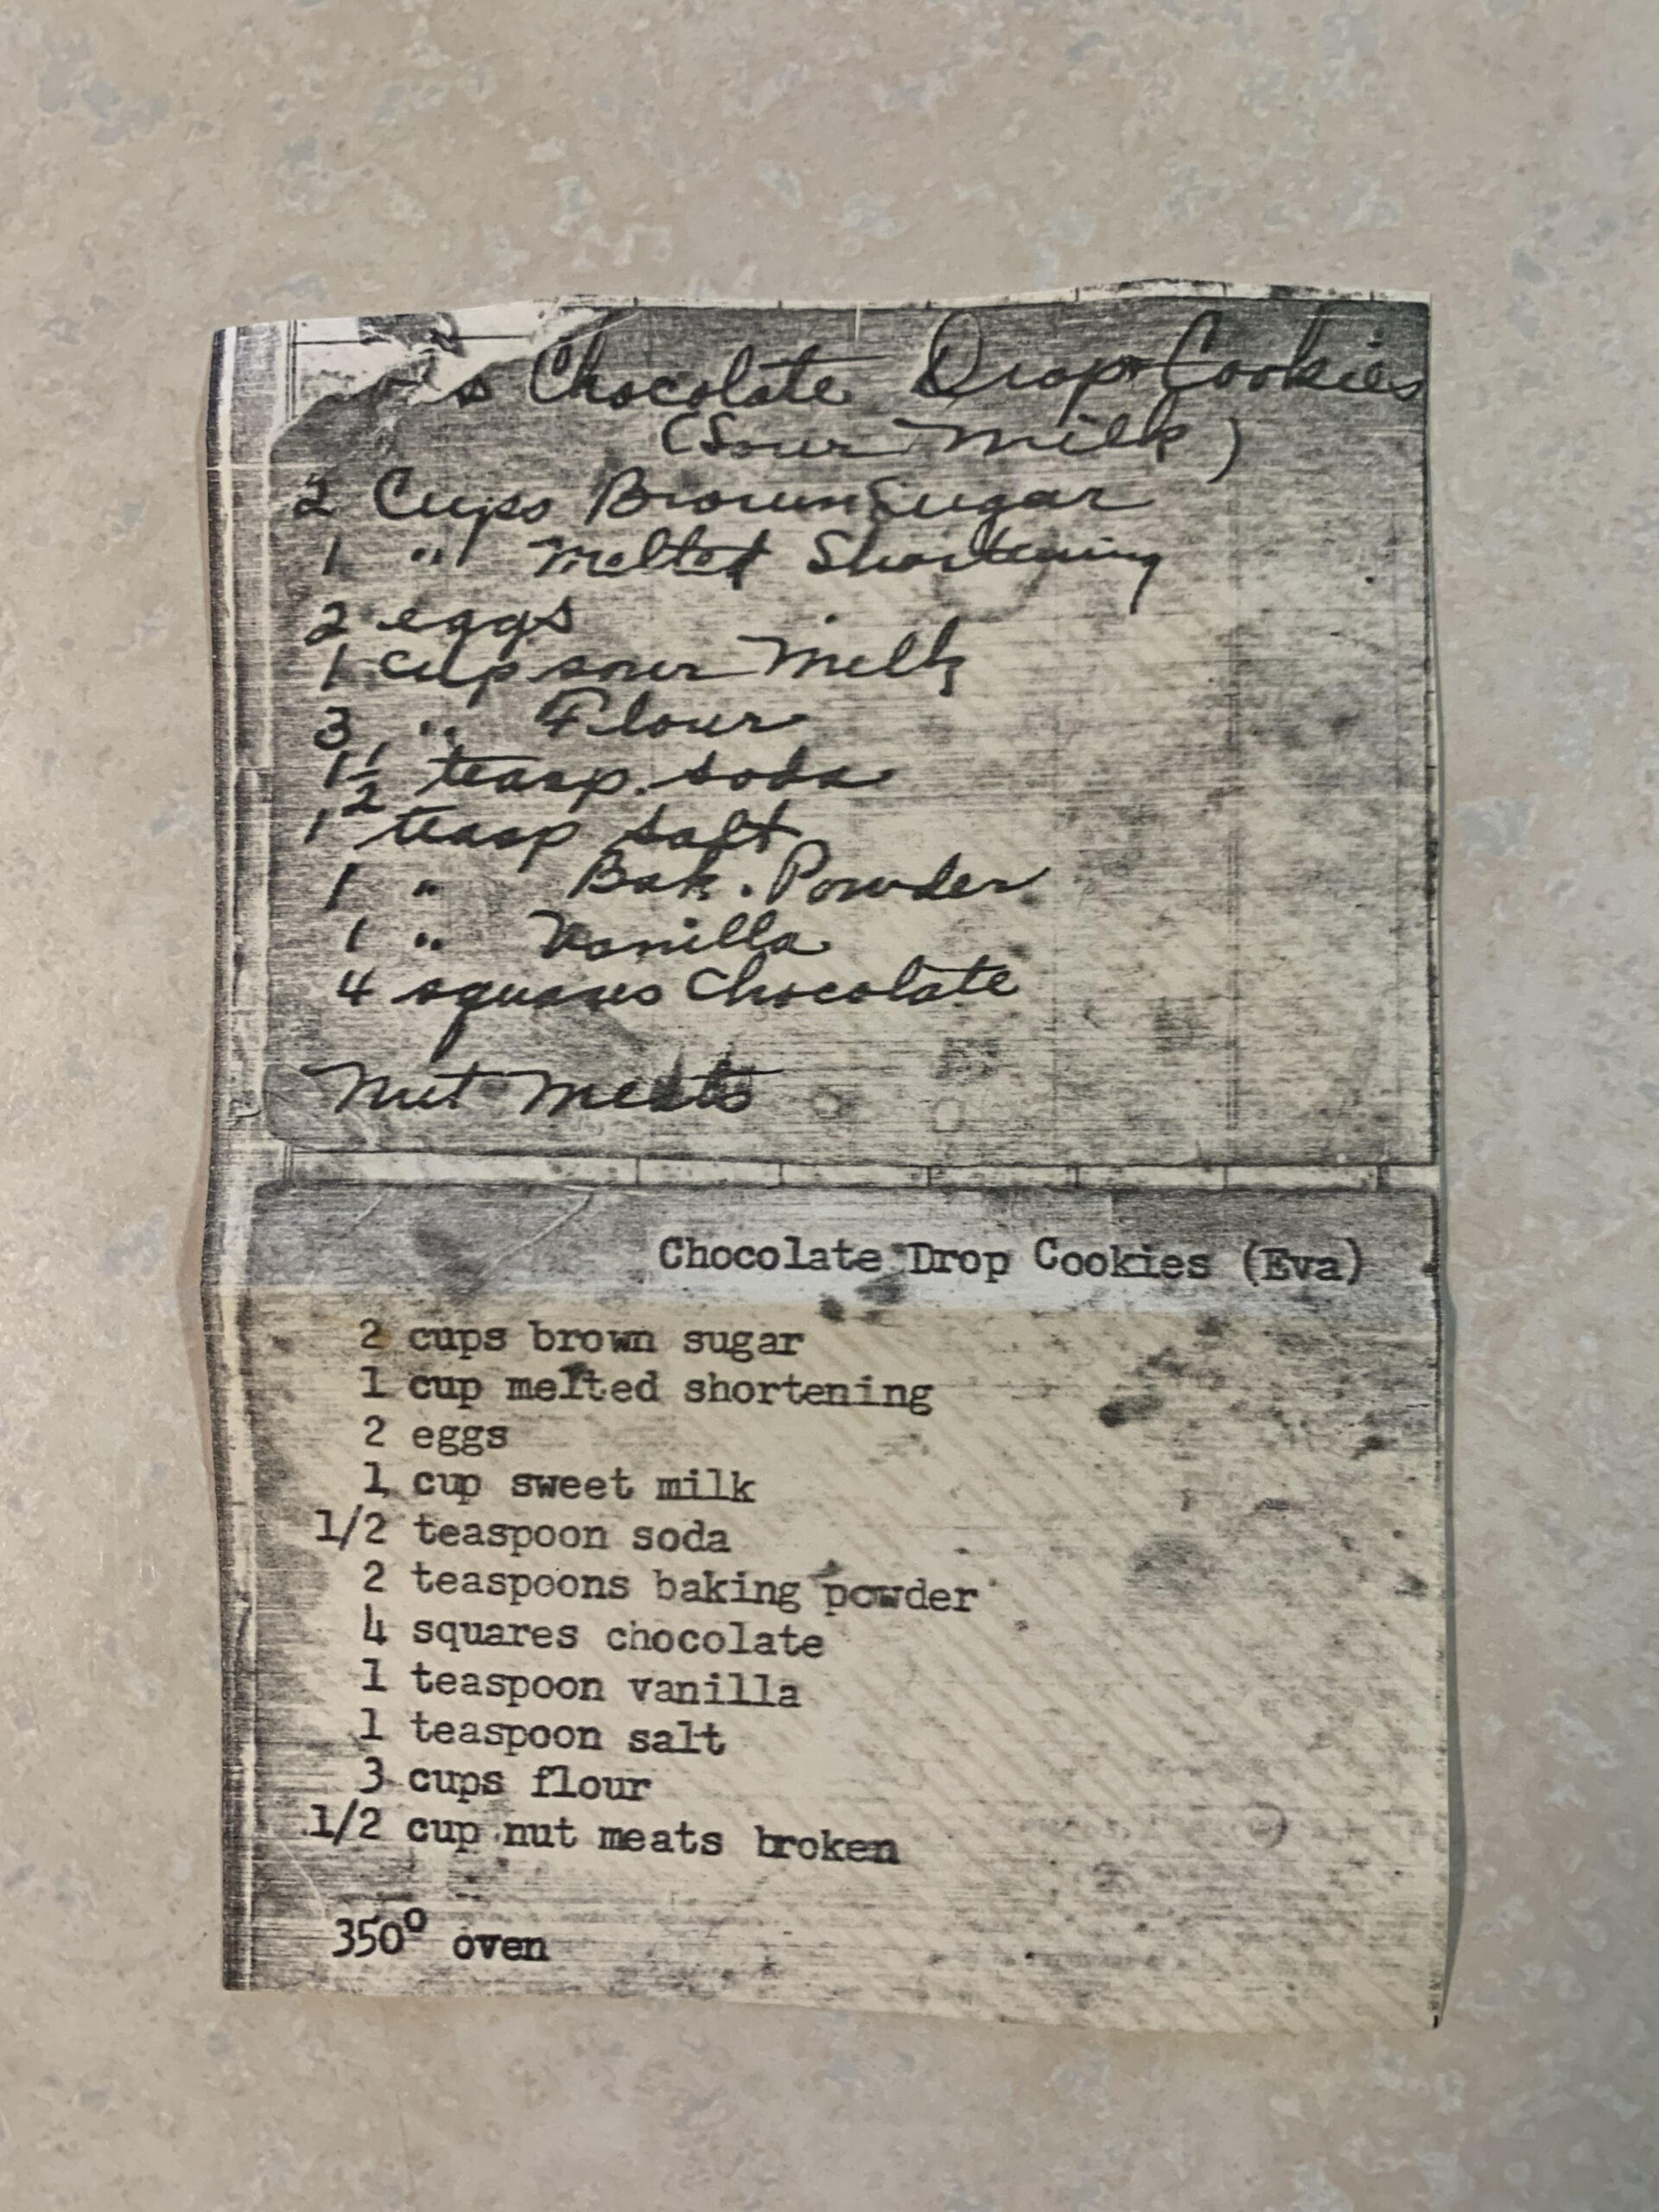 Chocolate Drop Cookies
(Sour Milk)
2 Cups Brown Sugar
1 " Melted Shortening
2 eggs
1 cup sour Milk
3 " Flour
1 1/2 teasp. soda
1 teasp salt
1 " Bak. Powder
1 " Vanilla
4 squares Chocolate
Nut Meats
Chocolate Drop Cookies (Eva)
2 cups brown sugar
1 cup melted shortening
2 eggs
1 cup sweet milk
1/2 teaspoon soda
2 teaspoons baking powder
4 squares chocolate
1 teaspoon vanilla
1 teaspoon salt
3 cups flour
1/2 cup nut meats broken
350° oven